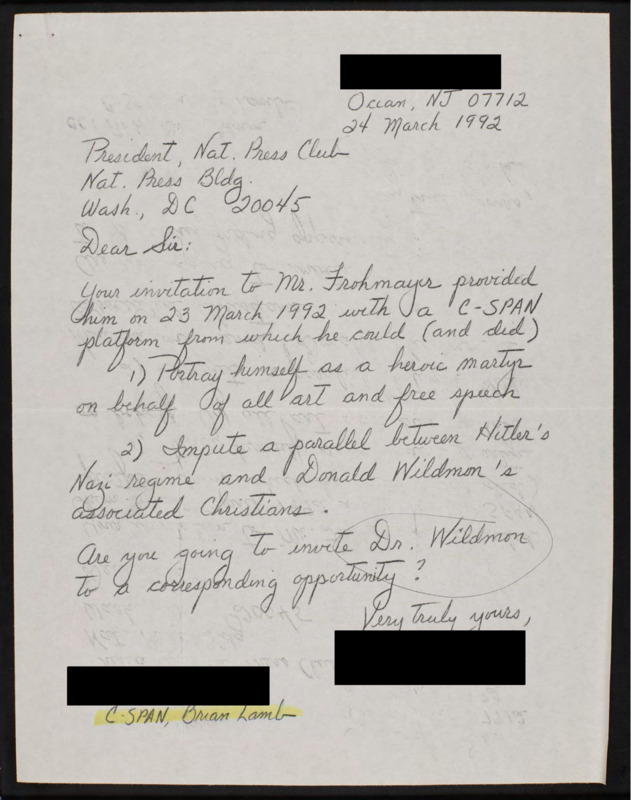 Ocean, NJ 07712
24 March 1992
President, Nat. Press Club
Nat. Press Bldg.
Wash., DC 20045
Dear Sir:
Your invitation to Mr. Frohmayer provided
him on 23 March 1992 with a C-SPAN
platform from which he could (and did)
1) Portray himself as a heroic martyr
on behalf of all art and free speech
2) Impute a parallel between Hitler's
Nazi regime and Donald Wildmon's
associated Christians.
Are you going to invite Dr. Wildmon
to a corresponding opportunity?
Very truly yours,
C-SPAN, Brian Lamb